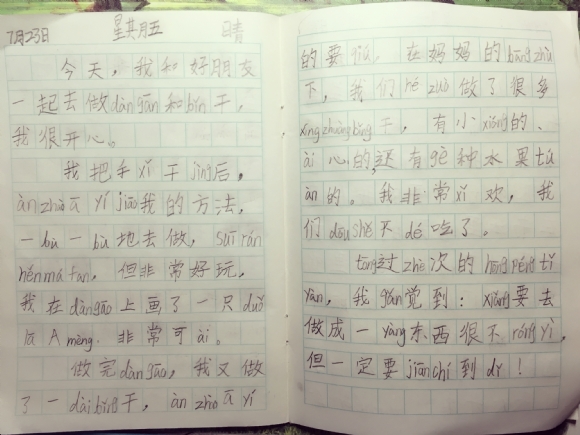 7月23日 星期五 晴
今天，我和好朋友
一起去做dàn gāo和bǐn干，
我很开心。
我把手xǐ干jìng后，
àn zhào ā yí jiāo我的方法，
一bù一bù地去做，suī rán
hěn má fan，但非常好玩，
我在dàn gāo上画了一只duō
la A mèng，非常可ài。
做完dàn gāo，我又做
了一dài bǐng干，àn zhào ā yí
的要qiú，在妈妈的bāng zhù
下，我们hé zuò做了很多
xíng zhuàng bǐng干，有小xióng的、
ài心的，还有gè种水果tú
àn的。我非常xǐ欢，我
们dōu shě不dé吃了。
tōng过zhè次的hōng péi tǐ
yàn，我gǎn觉到：xiǎng要去
做成一yàng东西很不róng yì，
但一定要jiān chí到dǐ！